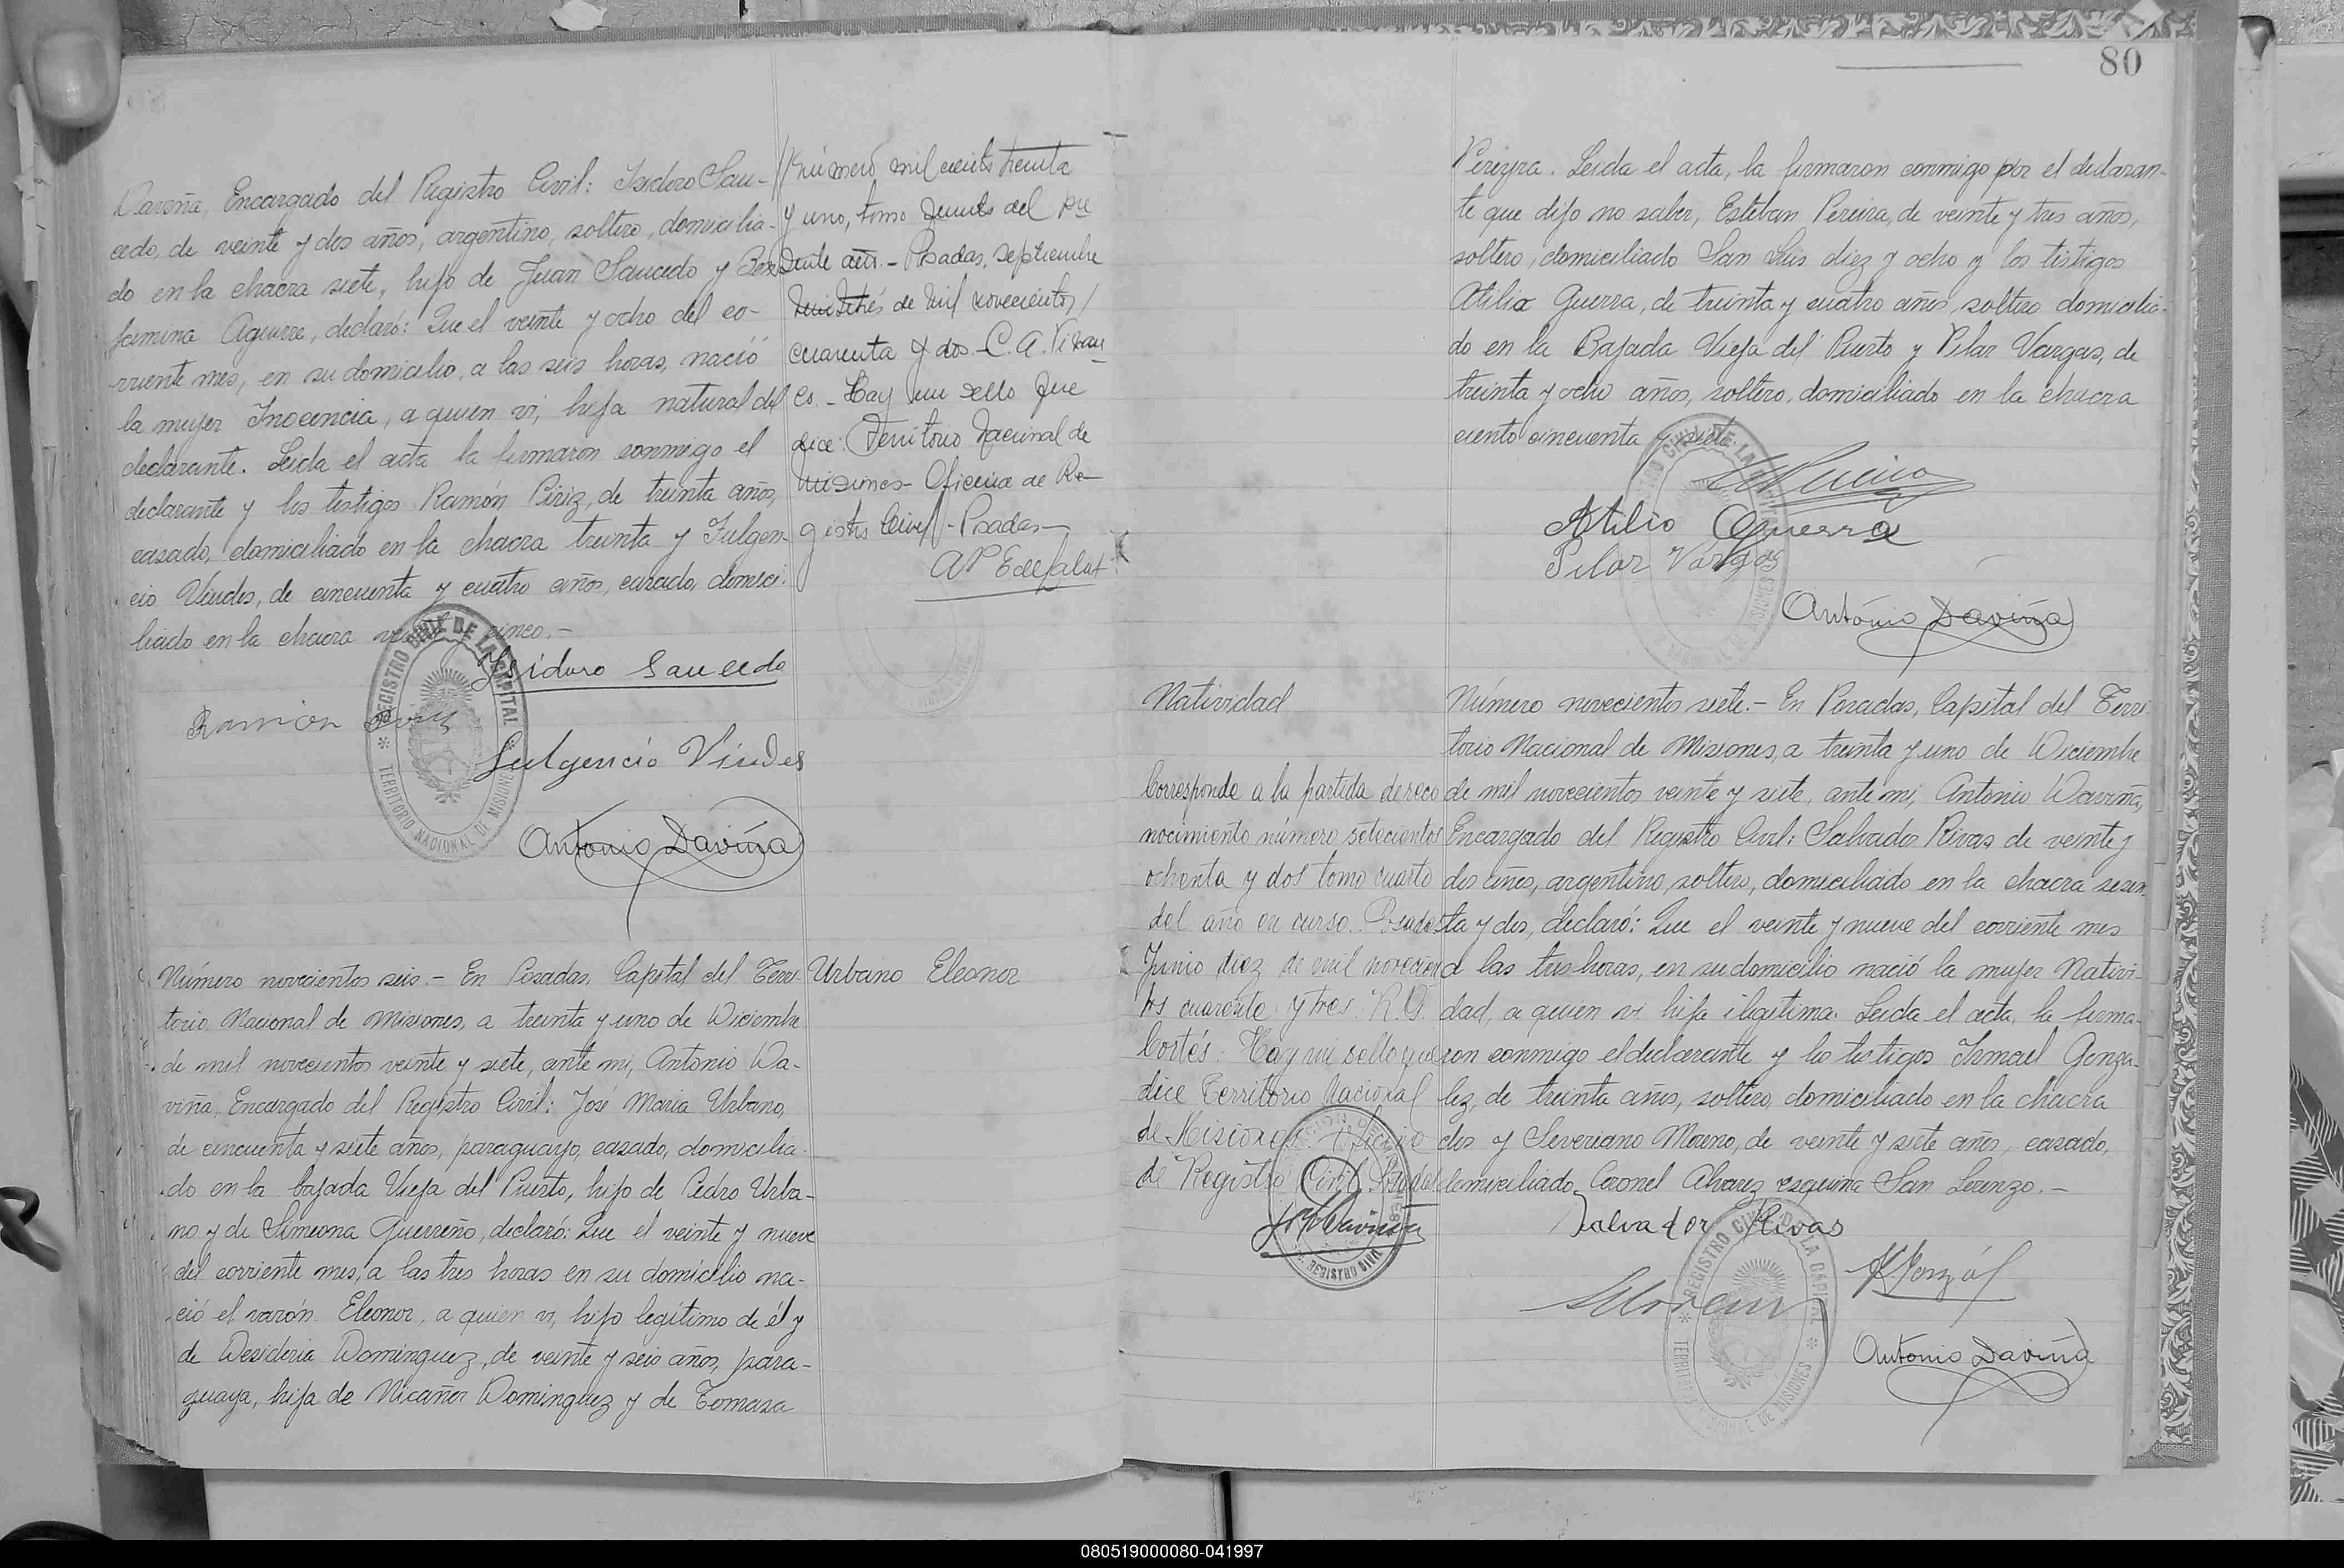 Daviña, Encargado del Registro Civil: Isidoro Sau-
cedo, de veinte y dos años, argentino, soltero, domicilia-
do en la chacra siete, hijo de Juan Saucedo y Ber
femina Aguirre, declaró: Que el veinte y ocho del co-
rriente mes, en su domicilio, a las seis horas, nació
la mujer Inocencia, a quien vi, hija natural del
declarante. Leida el acta la firmaron conmigo el
declarante y los testigos Ramón Piriz, de treinta años,
casado, domiciliado en la chacra treinta y Fulgen-
cio Viudes, de cincuenta y cuatro años, casado, domici-
liado en la chacra veinte y cinco.-
Isidoro Saucedo
Ramon Piriz
Fulgencio Viudes
Antonio Daviña
REGISTRO CIVIL DE LA CAPITAL
TERRITORIO NACIONAL DE MISIONES
número mil ciento treinta
y uno, tomo del pre
sente año.- Posadas, septiembre
de mil novecientos
cuarenta y dos.- C. A.
Hay un sello que
dice: Territorio Nacional de
Misiones- Oficina de Re-
gistro Civil - Posadas-
Número novecientos seis.- En Posadas, Capital del Terri-
torio Nacional de Misiones, a treinta y uno de Diciembre
de mil novecientos veinte y siete, ante mi, Antonio Da-
viña, Encargado del Registro Civil: José Maria Urbano,
de cincuenta y siete años, paraguayo, casado, domicilia-
do en la bajada Vieja del Puerto, hijo de Pedro Urba-
no y de Simeona Guerreño, declaró: Que el veinte y nueve
del corriente mes, a las tres horas en su domicilio na-
ció el varón Eleonor, a quien vi, hijo legítimo de él y
de Desideria Dominguez, de veinte y seis años, para-
guaya, hija de Nicañor Dominguez y de Tomasa
Urbano Eleonor
80
Pereyra. Leida el acta, la firmaron conmigo por el declaran-
te que dijo no saber, Esteban Pereira, de veinte y tres años,
soltero, domiciliado San Luis diez y ocho y los testigos
Atilio Guerra, de treinta y cuatro años, soltero domicilia-
do en la Bajada Vieja del Puerto y Pilar Vargas, de
treinta y ocho años, soltero, domiciliado en la chacra
ciento cincuenta y siete.
Atilio Guerra
Pilar Vargas
Antonio Daviña
Natividad
Corresponde a la partida de reco
nocimiento número setecientos
ochenta y dos tomo cuarto
del año en curso. Posadas
Junio diez de mil novecien
tos cuarenta y tres. R.O.
Cortés. Hay un sello que
dice Territorio Nacional
de Misiones. Oficina
de Registro Civil
Número novecientos siete.- En Posadas, Capital del Terri-
torio Nacional de Misiones, a treinta y uno de Diciembre
de mil novecientos veinte y siete, ante mi, Antonio Daviña,
Encargado del Registro Civil: Salvador Rivas de veinte y
dos años, argentino, soltero, domiciliado en la chacra sesen-
ta y dos, declaró: Que el veinte y nueve del corriente mes
a las tres horas, en su domicilio nació la mujer Nativi-
dad, a quien vi hija ilegitima. Leida el acta, la firma-
ron conmigo el declarante y los testigos Ismael Gonza-
lez, de treinta años, soltero, domiciliado en la chacra
dos y Severiano Moreno, de veinte y siete años, casado,
domiciliado Coronel Alvarez esquina San Lorenzo.-
Salvador Rivas
Antonio Daviña
REGISTRO CIVIL DE LA CAPITAL
080519000080-041997